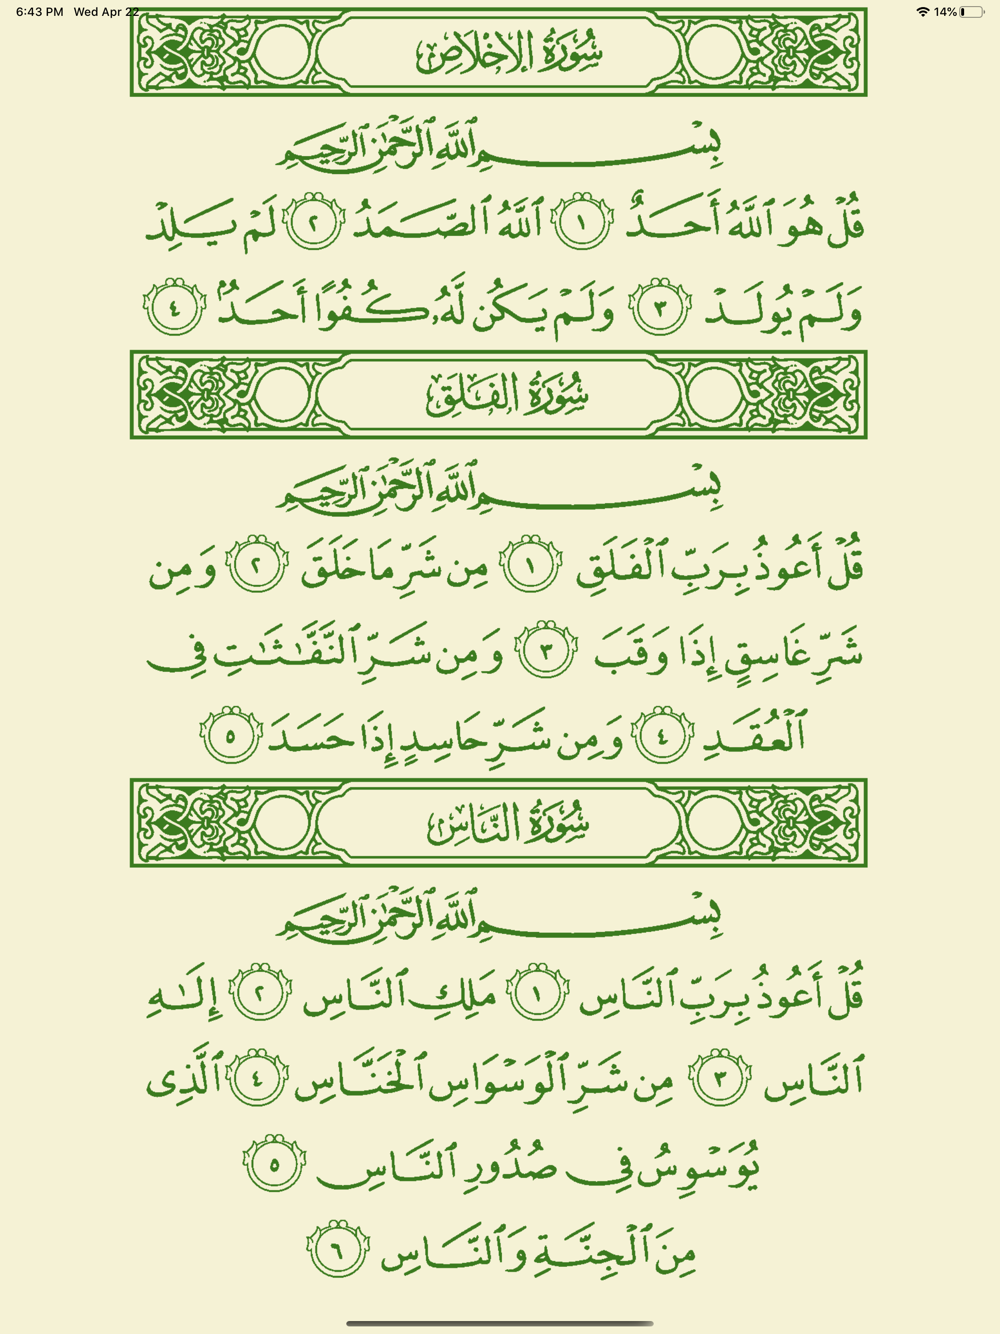 6:43 PM Wed Apr 22 14%
سُورَةُ الإِخْلَاصِ
بِسْمِ ٱللَّهِ ٱلرَّحْمَٰنِ ٱلرَّحِيمِ
قُلْ هُوَ ٱللَّهُ أَحَدٌ ١ ٱللَّهُ ٱلصَّمَدُ ٢ لَمْ يَلِدْ
وَلَمْ يُولَدْ ٣ وَلَمْ يَكُن لَّهُۥ كُفُوًا أَحَدٌۢ ٤
سُورَةُ الفَلَقِ
بِسْمِ ٱللَّهِ ٱلرَّحْمَٰنِ ٱلرَّحِيمِ
قُلْ أَعُوذُ بِرَبِّ ٱلْفَلَقِ ١ مِن شَرِّ مَا خَلَقَ ٢ وَمِن
شَرِّ غَاسِقٍ إِذَا وَقَبَ ٣ وَمِن شَرِّ ٱلنَّفَّـٰثَـٰتِ فِى
ٱلْعُقَدِ ٤ وَمِن شَرِّ حَاسِدٍ إِذَا حَسَدَ ٥
سُورَةُ النَّاسِ
بِسْمِ ٱللَّهِ ٱلرَّحْمَٰنِ ٱلرَّحِيمِ
قُلْ أَعُوذُ بِرَبِّ ٱلنَّاسِ ١ مَلِكِ ٱلنَّاسِ ٢ إِلَـٰهِ
ٱلنَّاسِ ٣ مِن شَرِّ ٱلْوَسْوَاسِ ٱلْخَنَّاسِ ٤ ٱلَّذِى
يُوَسْوِسُ فِى صُدُورِ ٱلنَّاسِ ٥
مِنَ ٱلْجِنَّةِ وَٱلنَّاسِ ٦